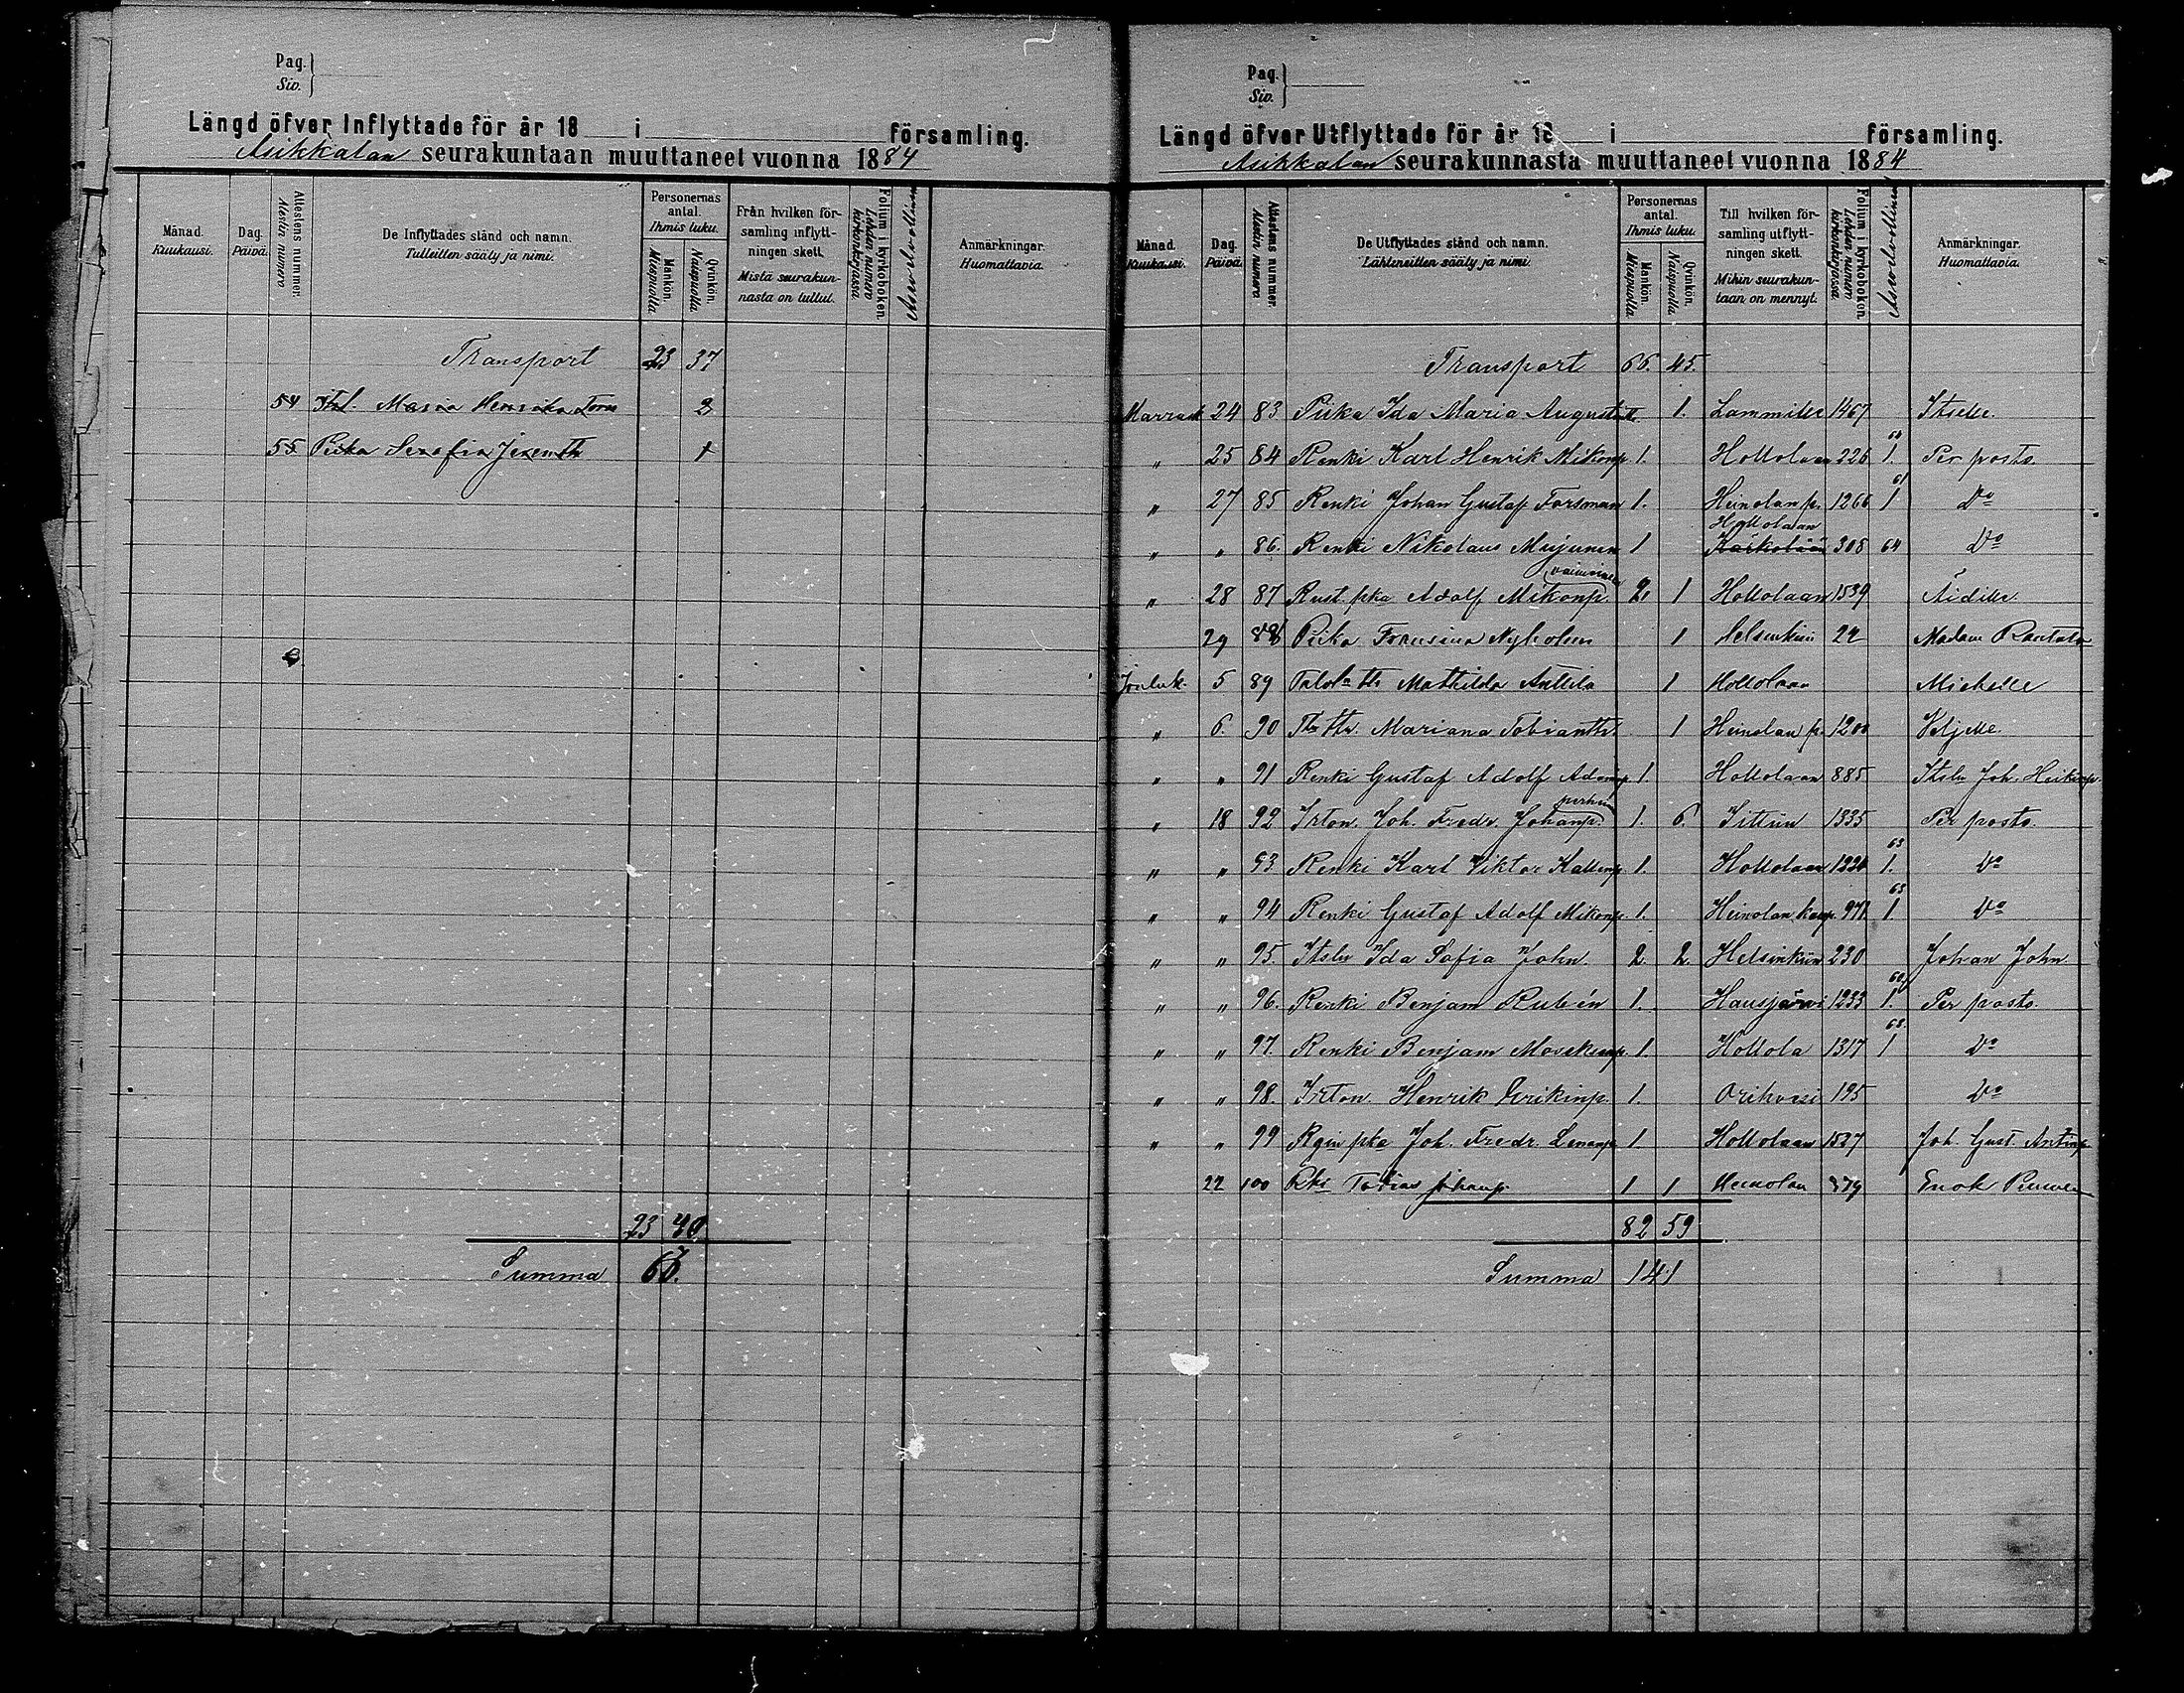 Pag.
Siv.
Längd öfver Inflyttade för år 18 i församling.
Asikkalan seurakuntaan muuttaneet vuonna 1884
Månad. Kuukausi.
Dag. Päivä.
Attestens nummer. Alestin numero
De Inflyttades stånd och namn. Tulleitten sääty ja nimi.
Personernas antal. Ihmis luku.
Mankön. Miespuolia
Qvinkön. Naispuolia
Från hvilken församling inflyttningen skett. Mistä seurakunnasta on tullut.
Folium i kyrkoboken. Lehden numero kirkonkirjassa.
Asevelvollinen
Anmärkningar. Huomattavia.
Transport 23 37
54 Itsl. Maria Henrika 2
55 Piika Serafia 1
23 40
Summa 63.
Pag.
Siv.
Längd öfver Utflyttade för år 18 i församling.
Asikkalan seurakunnasta muuttaneet vuonna 1884
Månad. Kuukausi.
Dag. Päivä.
Attestens nummer. Alestin numero
De Utflyttades stånd och namn. Lähteneitten sääty ja nimi.
Personernas antal. Ihmis luku.
Mankön. Miespuolia
Qvinkön. Naispuolia
Till hvilken församling utflyttningen skett. Mihin seurakuntaan on mennyt.
Folium i kyrkoboken. Lehden numero kirkonkirjassa.
Asevelvollinen
Anmärkningar. Huomattavia.
Transport 66. 45.
Marrask 24 83 Piika Ida Maria 1. Lammille 1467 Itselle.
" 25 84 Renki Karl Henrik Mikonp. 1. Hollolaan 226 1. 64 Per posto.
" 27 85 Renki Johan Gustaf Forsman 1. Heinolan p. 1266 1 61 Do
Hollolaan
" " 86. Renki Nikolaus Mujunen 1 Kärkölään 308 64 Do
vaimoineen
" 28 87 Rust. pka Adolf Mikonp. 2, 1 Hollolaan 1539 Äidille.
29 88 Piika Fransina Nyholm 1 Helsinkiin 22 Madam Rautala
Jouluk. 5 89 Mathilda Anttila 1 Hollolaan Miehelle
" 6. 90 Mariana 1 Heinolan p. 1200 Veljelle.
" " 91 Renki Gustaf Adolf Adamp. 1. Hollolaan 885 Itsln Joh. Heikinp.
perhein
" 18 92 Irton. Joh. Fredr. Johanp. 1. 6. Iittiin 1335 Per posto.
" " 93 Renki Karl Viktor Kallenp. 1. Hollolaan 1224 1. 63 Do
" " 94 Renki Gustaf Adolf Mikonp. 1. Heinolan kaup. 971 1. 63 Do
" " 95. Itsln Ida Sofia John. 2 2. Helsinkiin 230 Johan John.
" " 96. Renki Benjam Rubén 1. Hausjärvi 1233 1. 60 Per posto.
" " 97. Renki Benjam 1. Hollola 1317 1 Do
" " 98. Irton. Henrik Erikinp. 1. Orihvesi 195 Do
" " 99 pka Joh. Fredr. 1. Hollolaan 1527 Joh. Gust. Antinp.
22 100 Tobias Johanp. 1 1 Heinolan Enok
82 59
Summa 141